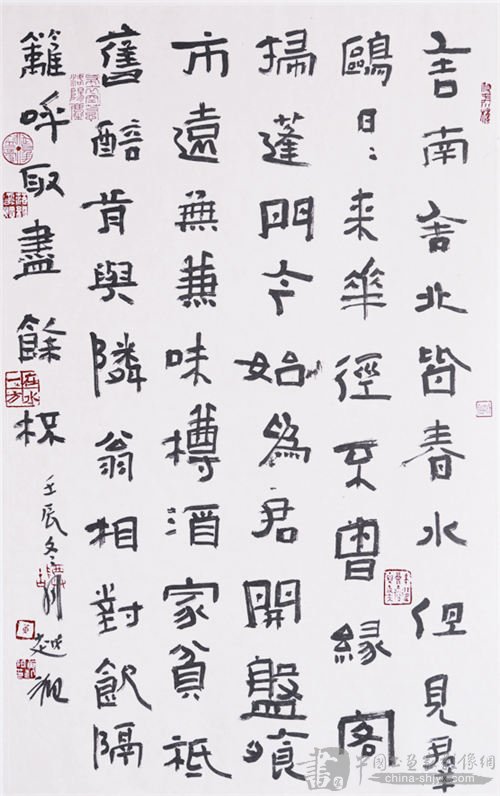 舍南舍北皆春水但見羣
鷗日〻來華徑不曾緣客
掃蓬門今始爲君開盤飧
市遠無兼味樽酒家貧祗
舊醅肯與隣翁相對飲隔
籬呼取盡餘杯
壬辰冬